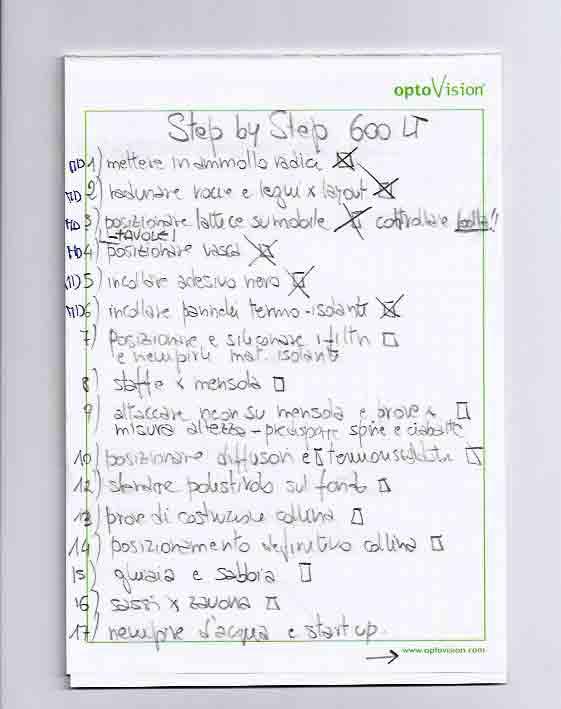 optoVision
Step by Step 600 LT
1) mettere in ammollo radici
2) radunare rocce e legni x layout
3) posizionare lattice su mobile controllare bolle!!
TAVOLE!
4) posizionare vasca
5) incollare adesivo nero
6) incollare pannelli termo-isolanti
7) Posizionare e siliconare i filtri
e riempirli mat. isolanti
8) staffe x mensola
9) attaccare neon su mensola e prove x
misura altezza - predisporre spine e ciabatte
10) posizionare diffusori e termoriscaldatori
12) stendere polistirolo sul fondo
13) prove di costruzione collina
14) posizionamento definitivo collina
15) ghiaia e sabbia
16) sassi x zavorra
17) riempire d'acqua e start up.
www.optovision.com